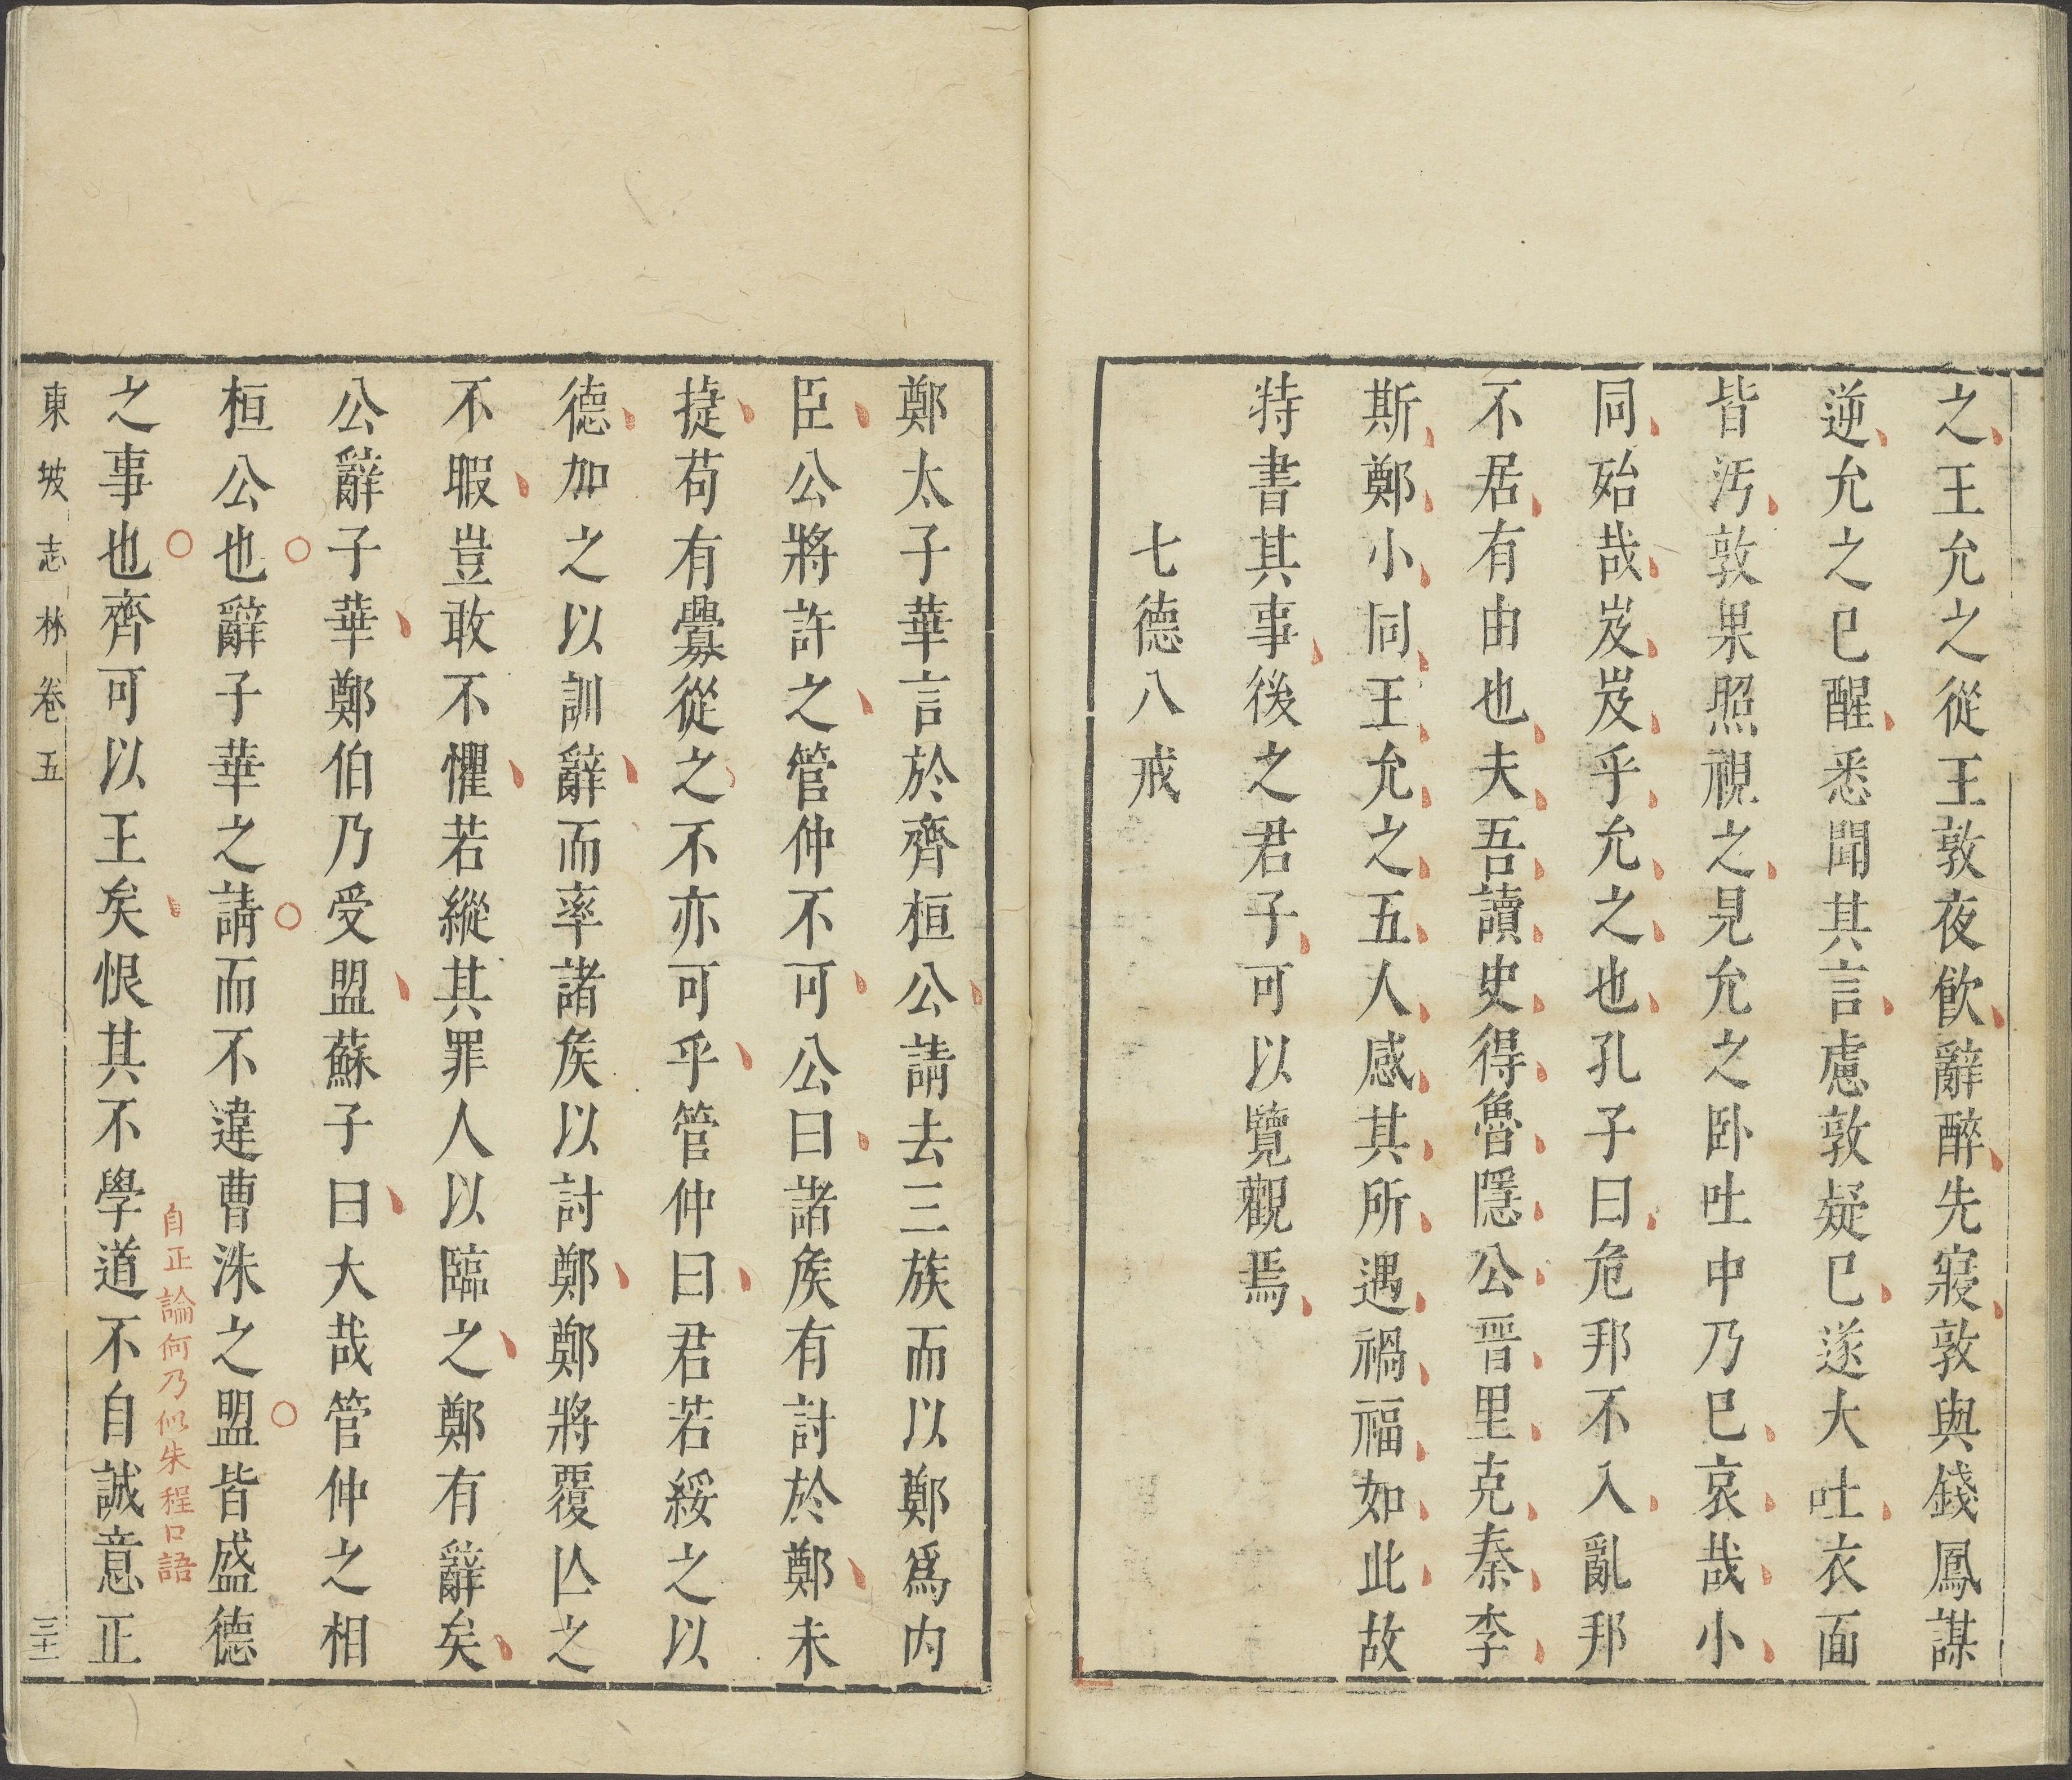 之王允之從王敦夜飲辭醉先寢敦與錢鳳謀
逆允之已醒悉聞其言慮敦疑已遂大吐衣面
皆汚敦果照視之見允之卧吐中乃已哀哉小
同殆哉岌岌乎允之也孔子曰危邦不入亂邦
不居有由也夫吾讀史得魯隱公晋里克秦李
斯鄭小同王允之五人感其所遇禍福如此故
特書其事後之君子可以覽觀焉
七德八戒
鄭太子華言於齊桓公請去三族而以鄭爲内
臣公將許之管仲不可公曰諸矦有討於鄭未
㨗苟有釁從之不亦可乎管仲曰君若綏之以
德加之以訓辭而率諸矦以討鄭鄭將覆亾之
不暇豈敢不懼若縱其罪人以臨之鄭有辭矣
公辭子華鄭伯乃受盟蘇子曰大哉管仲之相
桓公也辭子華之請而不違曹洙之盟皆盛德
自正論何乃似朱程口語
之事也齊可以王矣恨其不學道不自誠意正
東坡志林卷五
三十一